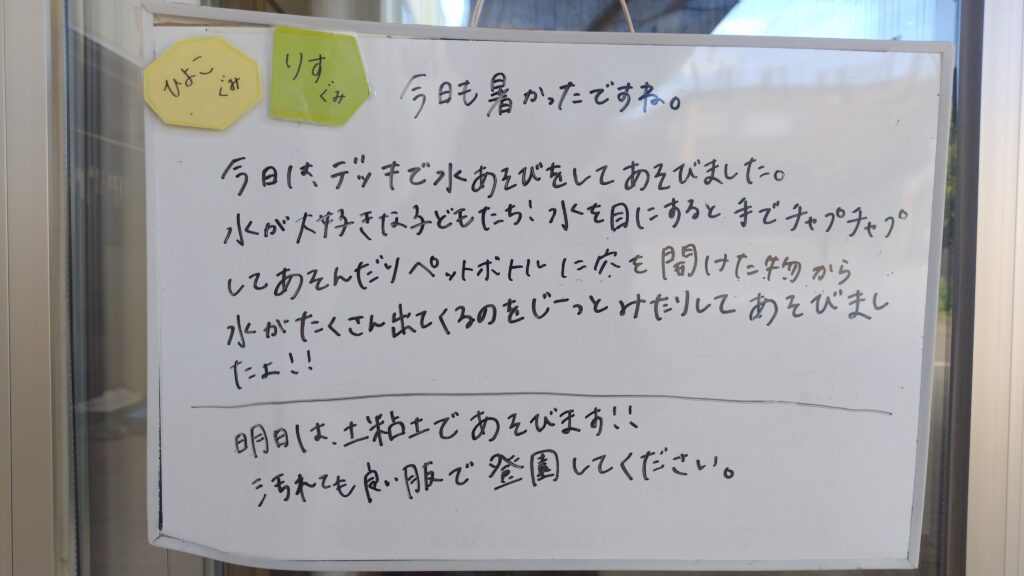 ひよこ
ぐみ
りす
ぐみ
今日も暑かったですね。
今日は、デッキで水あそびをしてあそびました。
水が大好きな子どもたち!水を目にすると手でチャプチャプ
してあそんだりペットボトルに穴を開けた物から
水がたくさん出てくるのをじーっとみたりしてあそびまし
たよ!!
明日は、土粘土であそびます!!
汚れても良い服で登園してください。